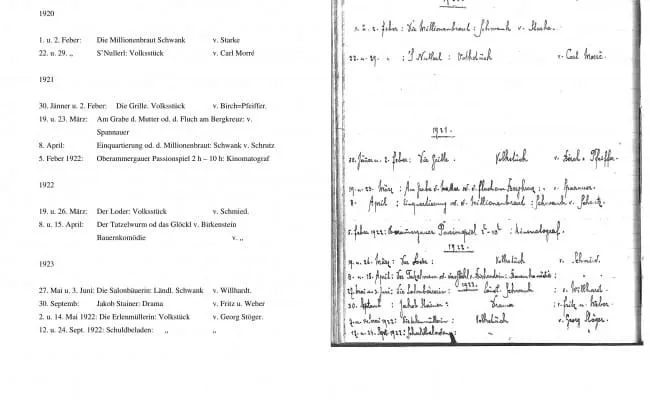 1920
1. u. 2. Feber: Die Millionenbraut Schwank v. Starke
22. u. 29. „ S'Nullerl: Volksstück v. Carl Morré
1921
30. Jänner u. 2. Feber: Die Grille. Volksstück v. Birch=Pfeiffer.
19. u. 23. März: Am Grabe d. Mutter od. d. Fluch am Bergkreuz: v.
Spannauer
8. April: Einquartierung od. d. Millionenbraut: Schwank v. Schrutz
5. Feber 1922: Oberammergauer Passionspiel 2 h – 10 h: Kinomatograf
1922
19. u. 26. März: Der Loder: Volksstück v. Schmied.
8. u. 15. April: Der Tatzelwurm od das Glöckl v. Birkenstein
Bauernkomödie v. „
1923
27. Mai u. 3. Juni: Die Salonbäuerin: Ländl. Schwank v. Willhardt.
30. Septemb: Jakob Stainer: Drama v. Fritz u. Weber
2. u. 14. Mai 1922: Die Erlenmüllerin: Volkstück v. Georg Stöger.
12. u. 24. Sept. 1922: Schuldbeladen: „ „
1. u. 2. Feber: Die Millionenbraut: Schwank v. Starke.
22. u. 29. „ : S'Nullerl: Volkstück v. Carl Morré.
1921.
30. Jänner u. 2. Feber: Die Grille. Volkstück v. Birch=Pfeiffer.
19. u. 23. März: Am Grabe d. Mutter od. d. Fluch am Bergkreuz: v.
8. April: Einquartierung od. d. Millionenbraut: Schwank v.
5. Feber 1922: Oberammergauer Passionspiel : Kinematograf.
1922.
19. u. 26. März: Der Loder: Volkstück v. Schmied.
8. u. 15. April: Der Tatzelwurm od. das Glöckl v. Birkenstein: Bauernkomödie „
1923.
27. Mai u. 3. Juni: Die Salonbäuerin: Ländl. Schwank v. Willhardt.
30. Septemb: Jakob Stainer: Drama v. Fritz u. Weber
2. u. 14. Mai 1922: Die Erlenmüllerin: Volkstück v. Georg Stöger.
12. u. 24. Sept. 1922: Schuldbeladen: „